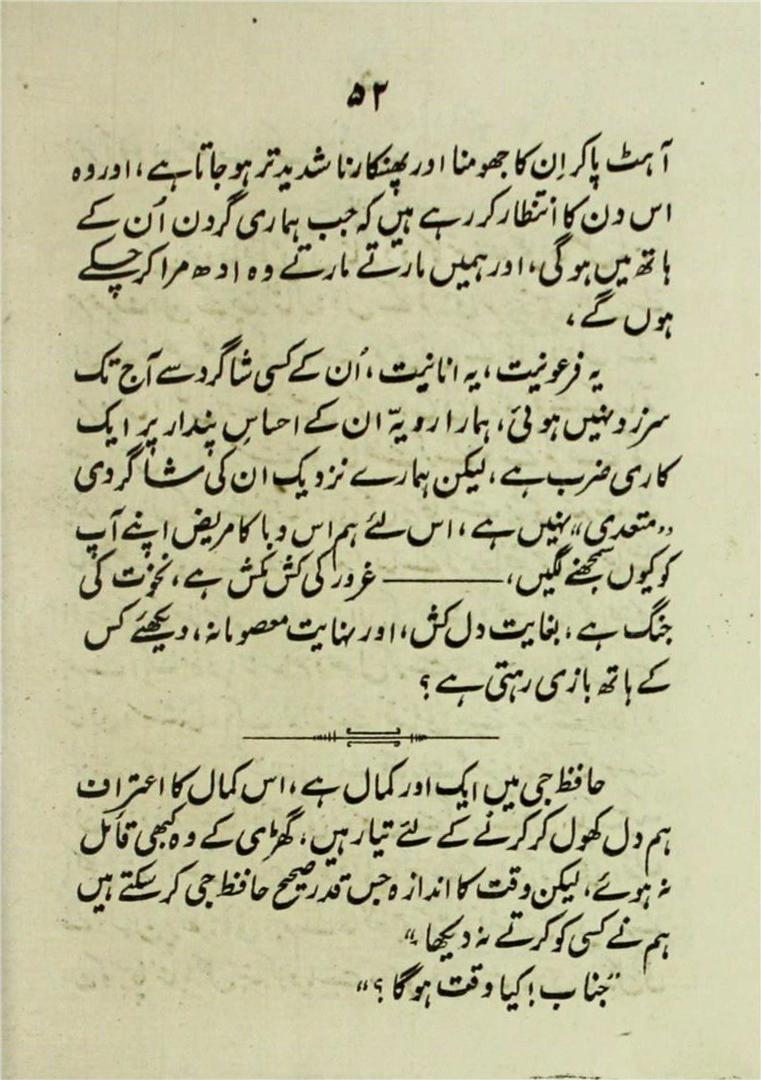 ۵۲
آہٹ پاکر اِن کا جھومنا اور پھنکارنا شدید تر ہوجاتا ہے، اور وہ
اس دن کا انتظار کر رہے ہیں کہ جب ہماری گردن اُن کے
ہاتھ میں ہوگی، اور ہمیں مارتے مارتے وہ ادھ مرا کر چکے
ہوں گے،
یہ فرعونیت، یہ انانیت، اُن کے کسی شاگرد سے آج تک
سرزد نہیں ہوئی، ہمارا رویہّ ان کے احساسِ پندار پر ایک
کاری ضرب ہے، لیکن ہمارے نزدیک ان کی شاگردی
”متعدی“ نہیں ہے، اس لئے ہم اس وبا کا مریض اپنے آپ
کو کیوں سمجھنے لگیں، ——— غرور کی کش مکش ہے، نخوت کی
جنگ ہے، بغایت دل کش، اور نہایت معصومانہ، دیکھئے کس
کے ہاتھ بازی رہتی ہے؟
حافظ جی میں ایک اور کمال ہے، اس کمال کا اعتراف
ہم دل کھول کر کرنے کے لئے تیار ہیں، گھڑی کے وہ کبھی قائل
نہ ہوئے، لیکن وقت کا اندازہ جس قدر صحیح حافظ جی کر سکتے ہیں
ہم نے کسی کو کرتے نہ دیکھا،“
”جناب! کیا وقت ہوگا؟“